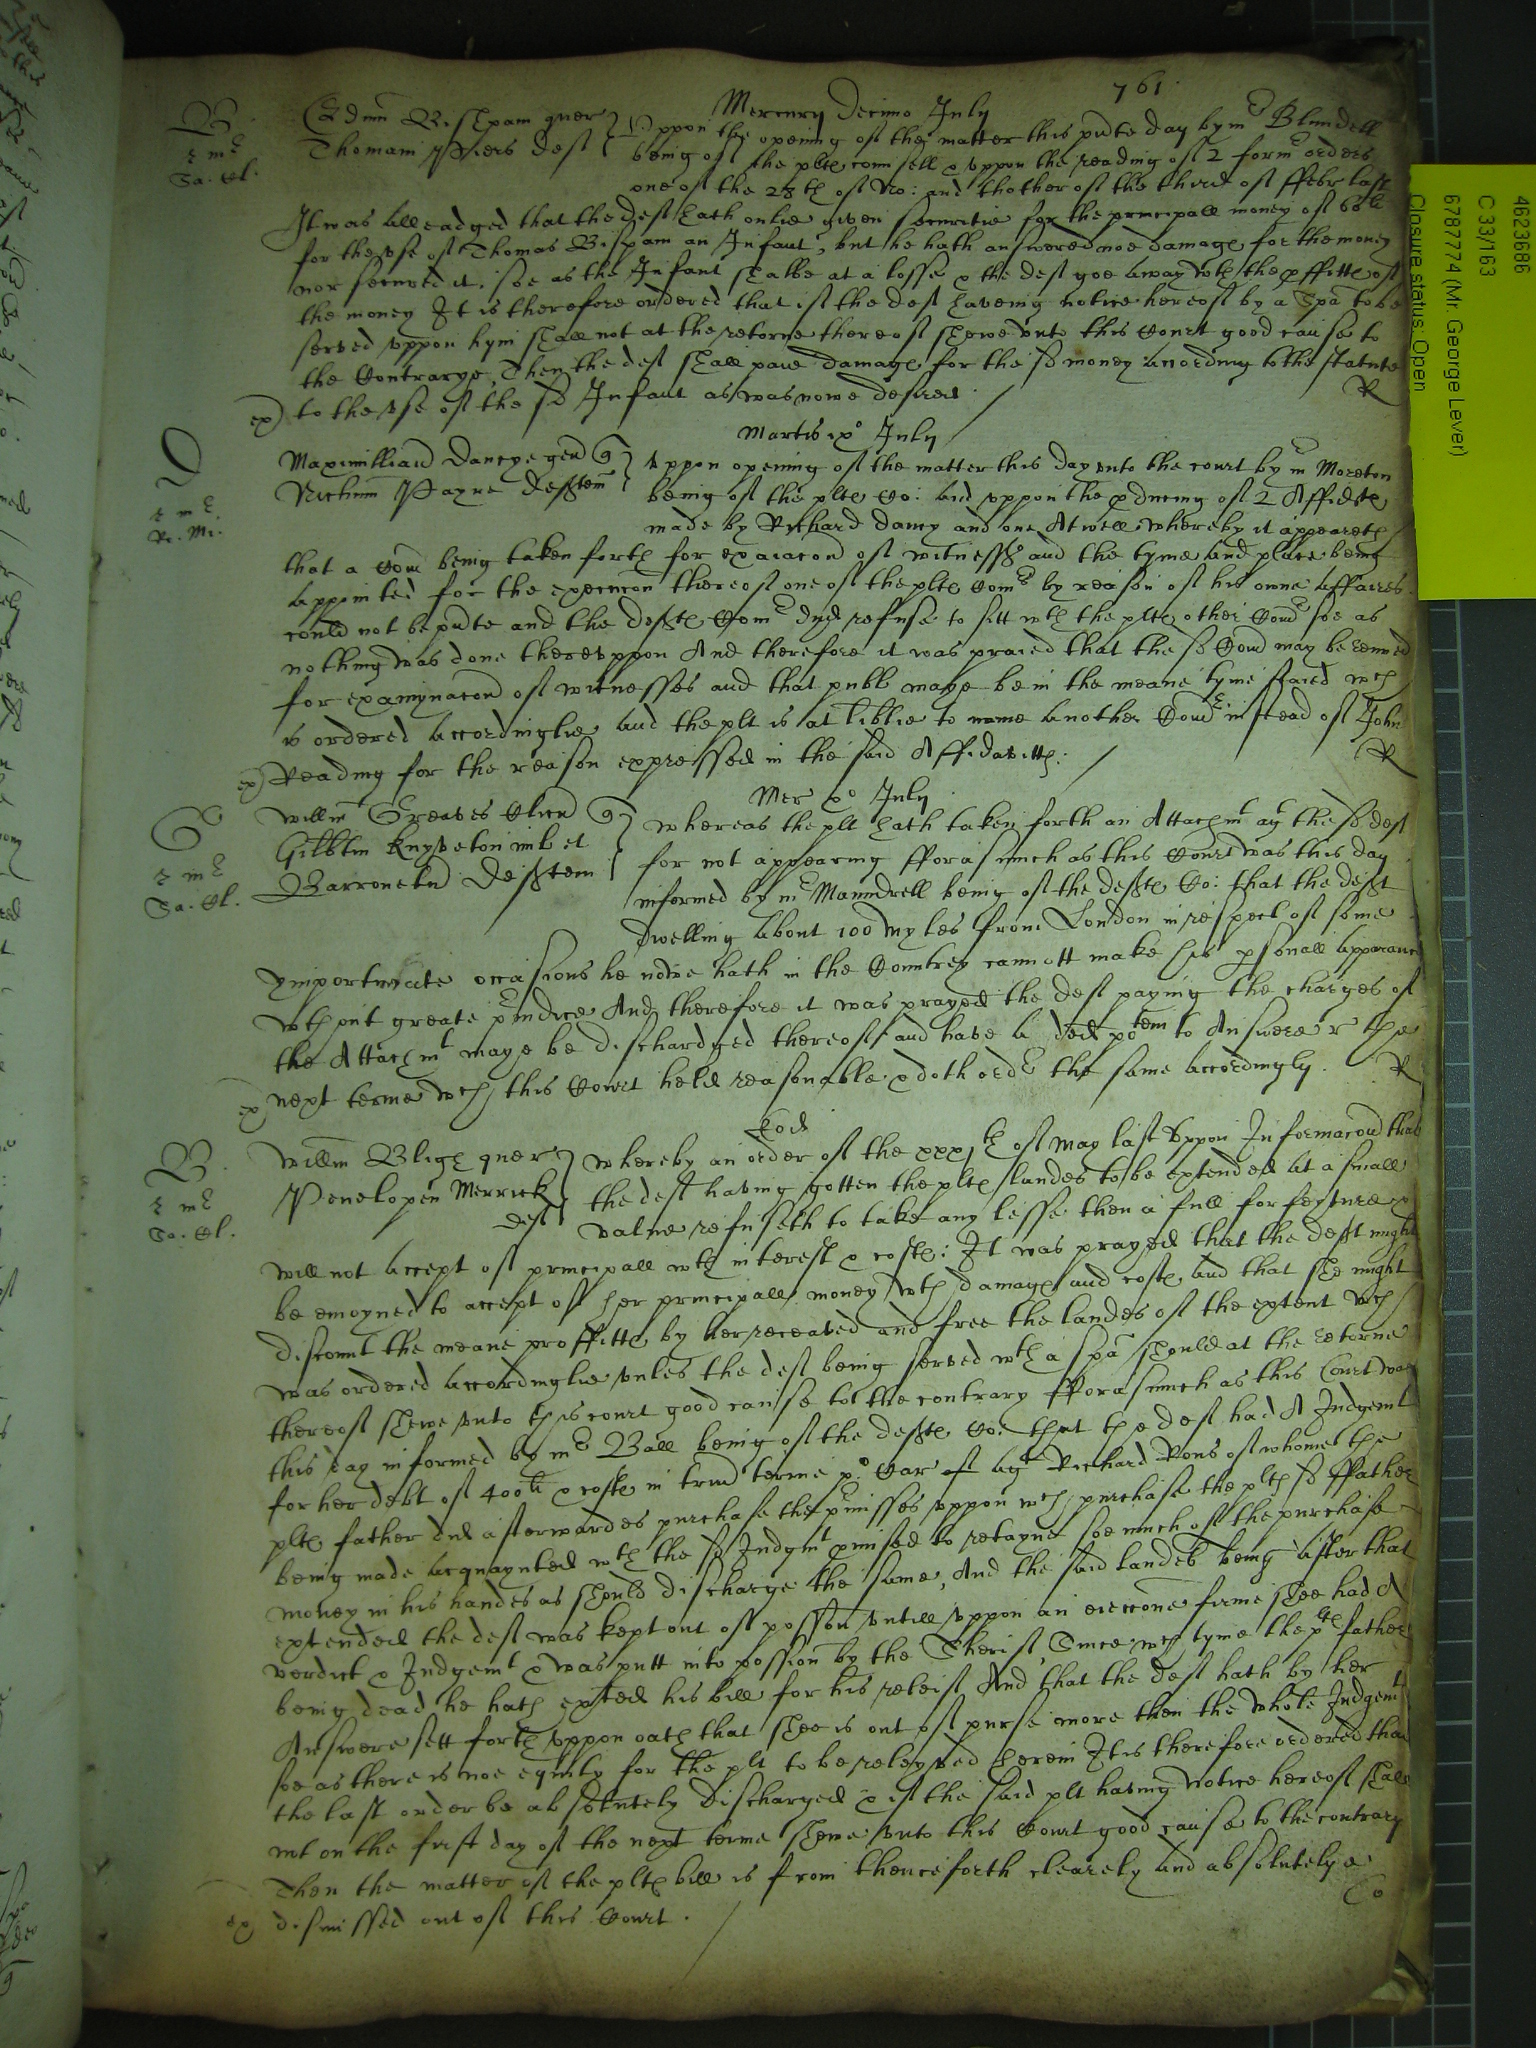 761
Mercurij Decimo July
B
Edmu Bispham quer
Thomam Piers deft
Uppon the opening of the matter this pnte day by mr Blundell
being of the pltes counsell & uppon the reading of 2 form orders
one of the 28th of No: and thother of the third of ffebr last
It was alleadged that the deft hath onlie given securitie for the principall money of 66li
for the use of Thomas Bispam an Infant, but he hath answered noe damage for the money
nor secured it, soe as the Infant shalbe at a losse & the deft goe away wth the pffitte of
the money It is therefore ordered that if the deft haveing notice hereof by a Spa to be
served uppon hym shall not at the retorne thereof shewe unto this Court good cause to
the Contrarye, Then the deft shall paie damage for the sd money according to the statute
ex) to the use of the sd Infant as was nowe desired
R
Martis ixo July
D
Maximilliand Dancye gen q
Richum Payne Defftem
Uppon opening of the matter this day unto the court by mr Moreton
being of the pltes Co: and uppon the pducing of 2 Affidts
made by Richard Dancy and one Atwell whereby it appeareth
that a Com being taken forth for exaiacon of witnesses and the tyme and place being
appointed for the execucon thereof one of the pltes Comrs by reason of his owne affaires
could not be pnte and the deftes Comrs dyd refuse to sitt wth the pltes other Comr soe as
nothing was done thereuppon And therefore it was praied that the sd Com may be renued
for examynacon of witnesses and that publ maye be in the meane tyme staied wch
is ordered accordinglie and the plt is at liblie to name another Comr instead of John
ex) Reading for the reason expressed in the said Affidavitts.
R
Mer xo July
G
Willm Greaves Clicu q
Gilbtm Knyveton mil et
Barronettu Defftem
Whereas the plt hath taken forth an Attachmt agt the sd deft
for not appearing fforasmuch as this Court was this day
informed by mr Maundrell being of the defftes Co: that the defft
dwelling about 100 myles from London in respect of some
ymportunate occasions he nowe hath in the Countrey cannott make his psonall apparance
wthout greate piudice And therefore it was prayed the deft paying the charges of
the Attachmt maye be dischardged thereof and have a ded potem to Answere r the
ex) next terme wch this Court held reasonable & doth order the same accordingly.
R
Eod
B
Willm Bligh quer
Penelopen Merrick
deft
Whereby an order of the xxxjth of May last Uppon Informacon that
the deft having gotten the pltes landes to be extended at a small
value refuseth to take any lesse then a full forfeyture &
will not accept of principall wth interest & costes: It was prayed that the defft might
be enioyned to accept of her principall money wth damage and costes and that she might
discount the meane proffitte by her receaved and free the landes of the extent wch
was ordered accordinglie unles the deft being served wth a spa should at the retorne
thereof shewe unto this court good cause to the contrary fforasmuch as this Court was
this day informed by mr Ball being of the defftes Co: that the deft had A Judgemt
for her debt of 400li & costes in trin terme po Car agt Richard Vons of whome the
pltes father did afterwardes purchase the pmisses uppon wch purchase the pltes sd ffather
being made acquaynted wth the sd Judgmt pmised to retayne soe much of the purchase
money in his handes as should discharge the same, And the said landes being after that
extended the deft was kept out of possion untill uppon an eieccone firme shee had A
verdict & Judgemt & was putt into possion by the Sherif, Since wch tyme the pltes father
being dead he hath exted his bill for his releif And that the deft hath by her
Answere sett forth uppon oath that shee is out of purse more then the whole Judgemt
soe as there is noe equity for the plt to be releyved herein It is therefore ordered that
the last order be absolutely discharged & if the said plt having notice hereof shall
not on the first day of the next terme shewe unto this Court good cause to the contrary
Then the matter of the pltes bill is from thenceforth clearely and absolutelye
ex) dismissed out of this Court.
Co
4623686
C 33/163
6787774 (Mr. George Lever)
Closure status: Open